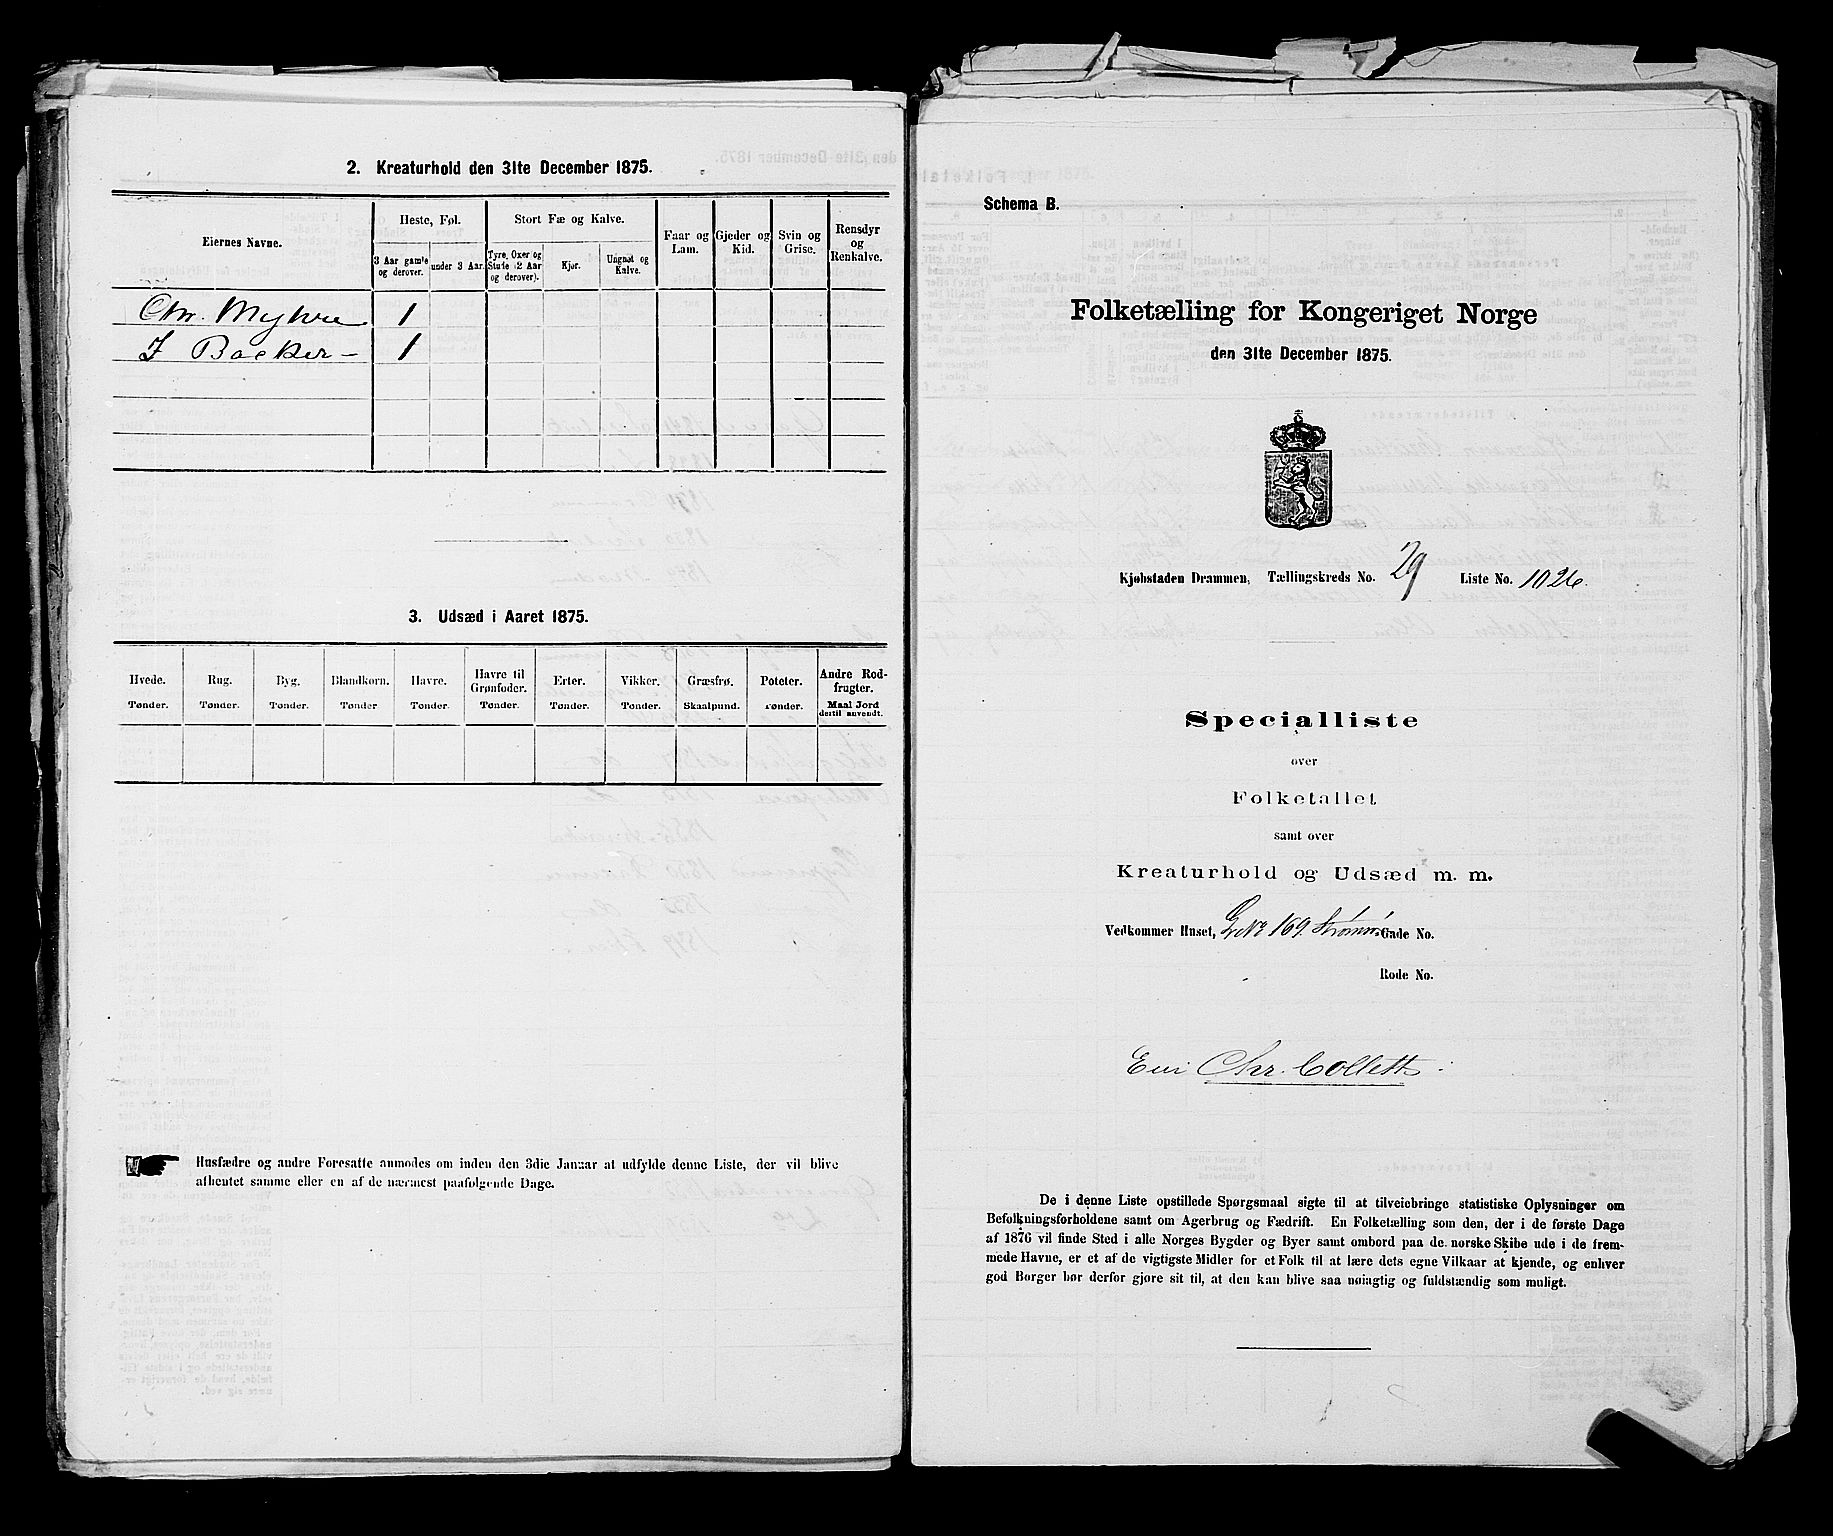 2. Kreaturhold den 31te December 1875.
Eiernes Navne.
Heste, Føl.
3 Aar gamle og derover.
under 3 Aar.
Stort Fæ og Kalve.
Tyre, Oxer og Stude (2 Aar og derover).
Kjør.
Ungnøt og Kalve.
Faar og Lam.
Gjeder og Kid.
Svin og Grise.
Rensdyr og Renkalve.
Chr. Myhre 1
J Backer — 1
3. Udsæd i Aaret 1875.
Hvede. Tønder.
Rug. Tønder.
Byg. Tønder.
Blandkorn. Tønder
Havre. Tønder.
Havre til Grønfoder. Tønder.
Erter. Tønder.
Vikker. Tønder.
Græsfrø. Skaalpund.
Poteter. Tønder.
Andre Rodfrugter. Maal Jord dertil anvendt.
Husfædre og andre Foresatte anmodes om inden den 3die Januar at udfylde denne Liste, der vil blive
afhentet samme eller en af de nærmest paafølgende Dage.
Schema B.
Folketælling for Kongeriget Norge
den 31te December 1875.
Kjøbstaden Drammen, Tællingskreds No. 29 Liste No. 1026.
Specialliste
over
Folketallet
samt over
Kreaturhold og Udsæd m. m.
Vedkommer Huset, G No 169. Strømsø Gade No.
Rode No.
Eier Chr. Collett
De i denne Liste opstillede Spørgsmaal sigte til at tilveiebringe statistiske Oplysninger om
Befolkningsforholdene samt om Agerbrug og Fædrift. En Folketælling som den, der i de første Dage
af 1876 vil finde Sted i alle Norges Bygder og Byer samt ombord paa de norske Skibe ude i de frem-
mede Havne, er et af de vigtigste Midler for et Folk til at lære dets egne Vilkaar at kjende, og enhver
god Borger bør derfor gjøre sit til, at den kan blive saa nøiagtig og fuldstændig som muligt.